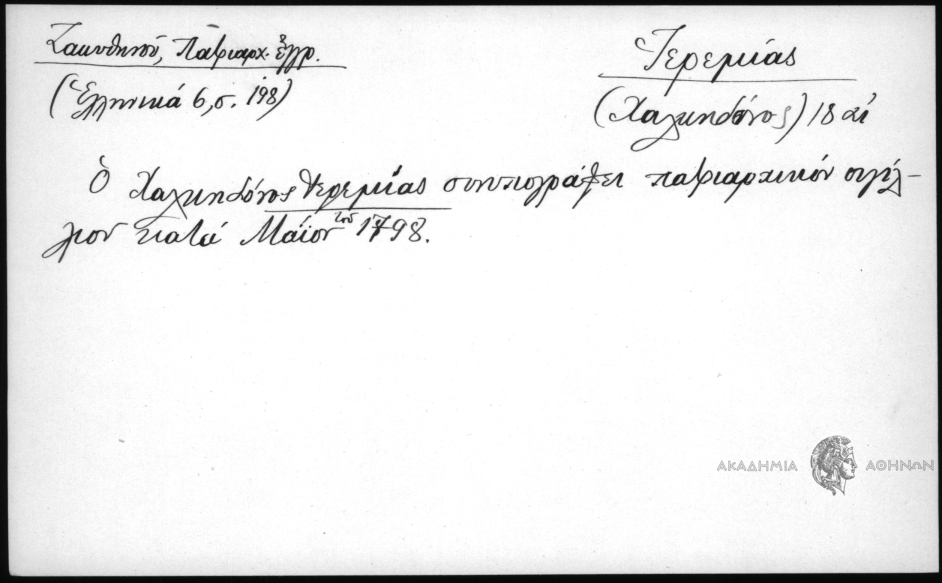 Ζακυθηνοῦ, Πατριαρχ. ἔγγρ.
(Ἑλληνικά 6, σ. 198)
Ἱερεμίας
(Χαλκηδόνος) 18 αἰ
Ὁ Χαλκηδόνος Ἱερεμίας συνυπογράφει πατριαρχικόν σιγίλ-
λιον κατά Μαΐον τοῦ 1798.
ΑΚΑΔΗΜΙΑ ΑΘΗΝΩΝ